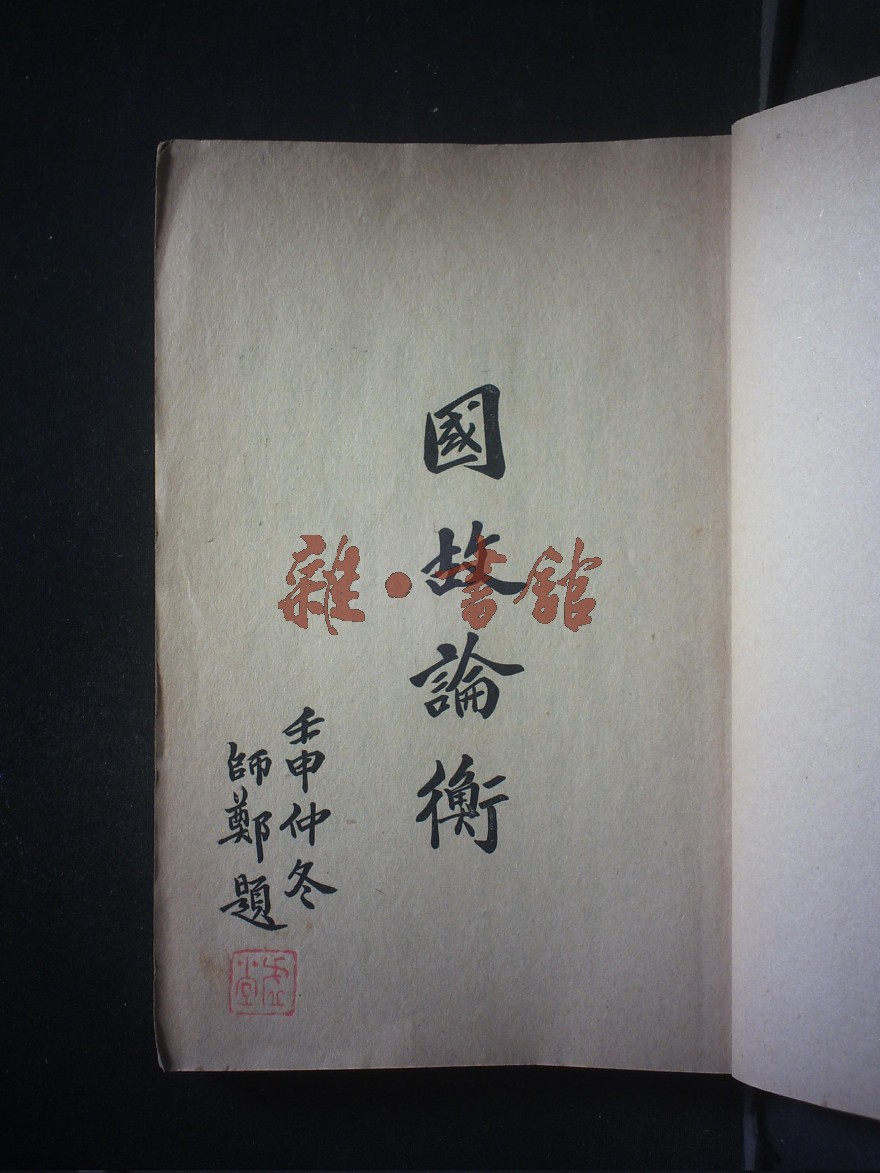 國故論衡
壬申仲冬
師鄭題
雜·書館